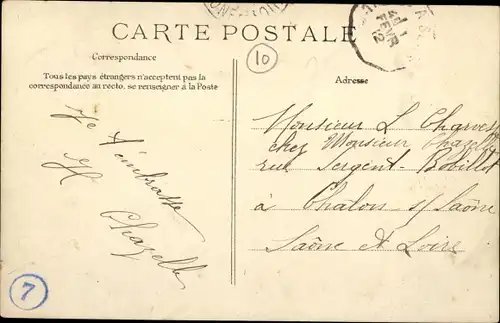 CARTE POSTALE
10
Correspondance
Tous les pays étrangers n'acceptent pas la
correspondance au recto, se renseigner à la Poste
Adresse
FEVR
12
Je t'embrasse
Chazelle
Monsieur L Charves
chez Monsieur Chazelle
rue Sergent-Bobillot
à Chalon s/ Saône
Saône et Loire
7